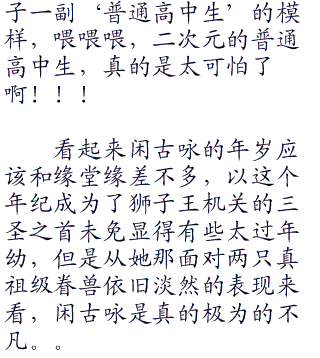 子一副‘普通高中生’的模
样，喂喂喂，二次元的普通
高中生，真的是太可怕了
啊！！！
看起来闲古咏的年岁应
该和缘堂缘差不多，以这个
年纪成为了狮子王机关的三
圣之首未免显得有些太过年
幼，但是从她那面对两只真
祖级眷兽依旧淡然的表现来
看，闲古咏是真的极为的不
凡。。